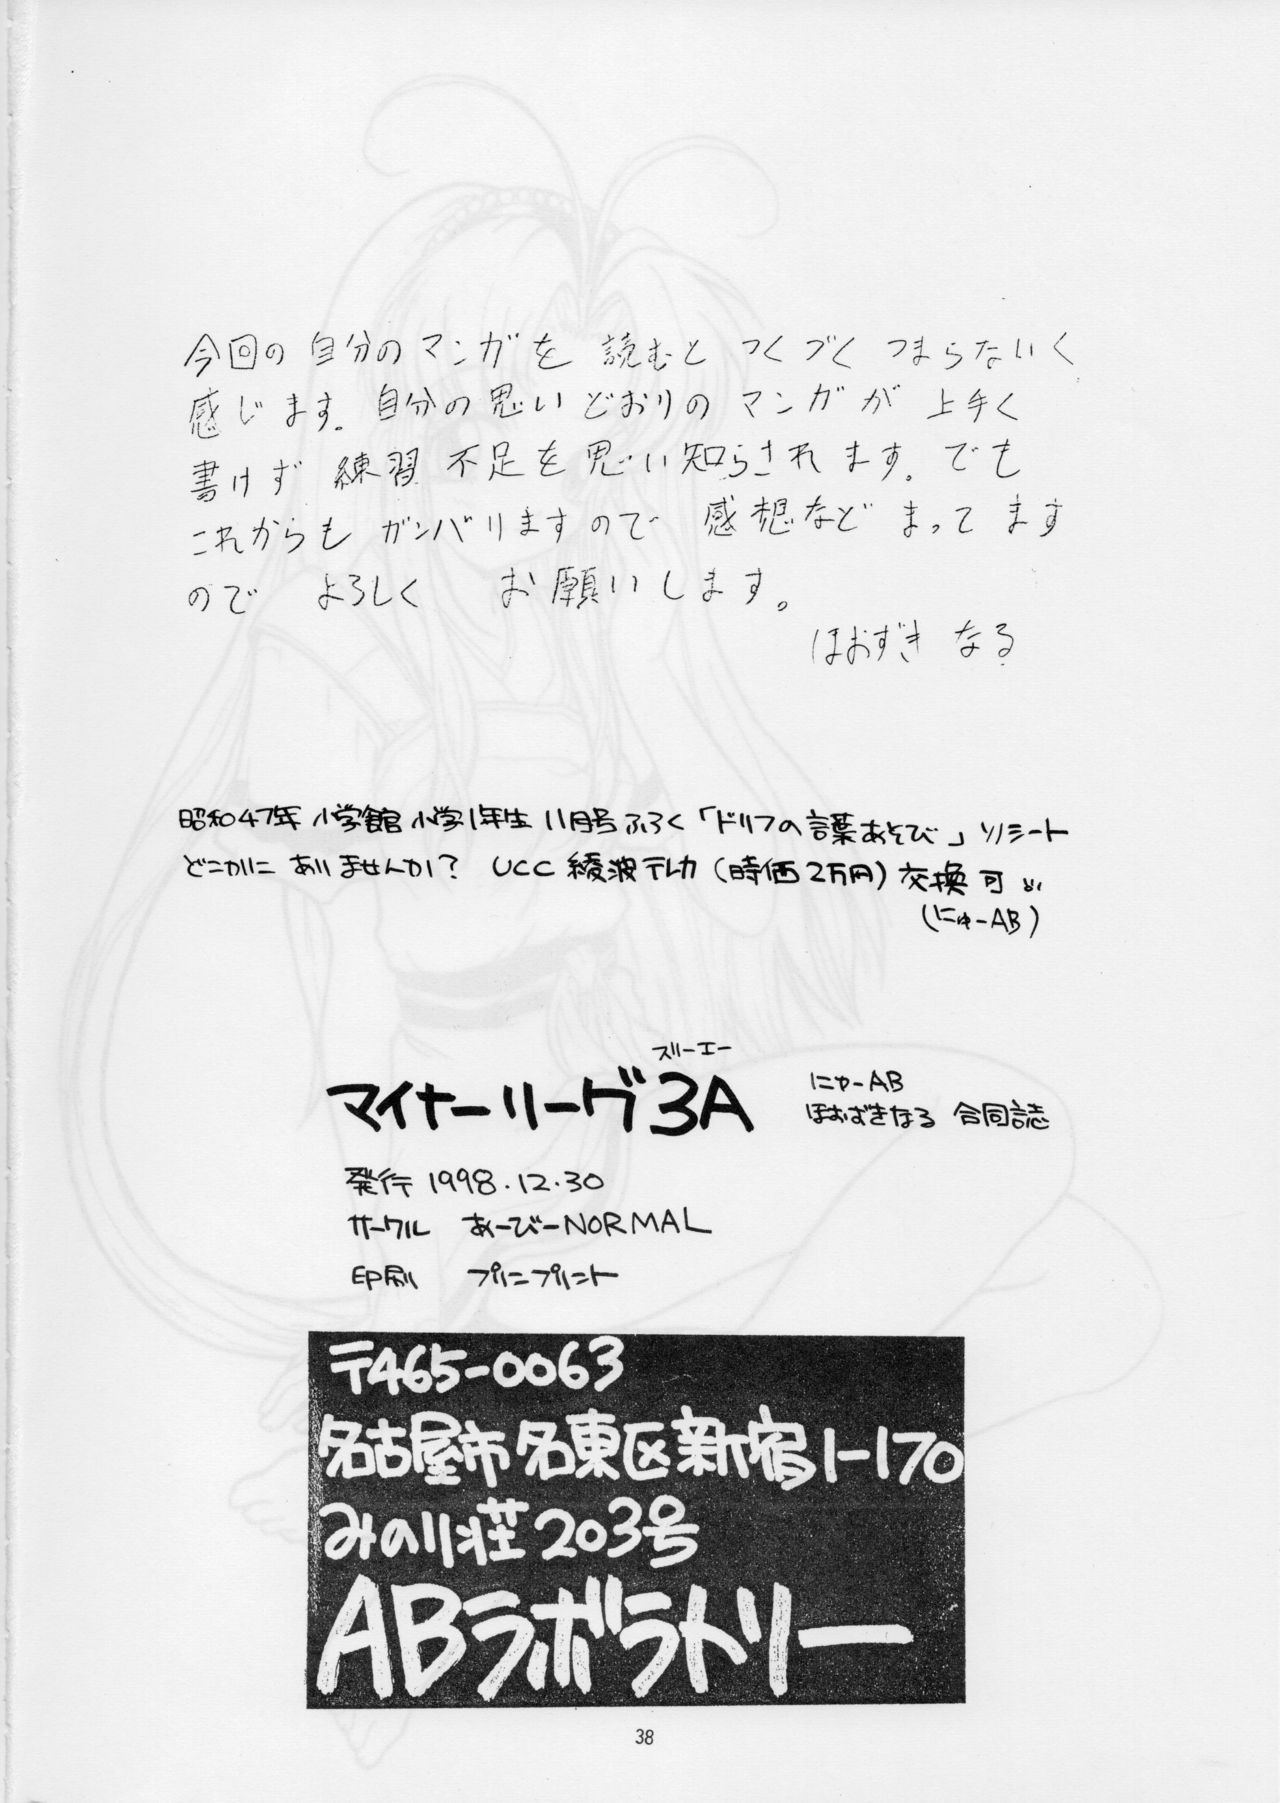 今回の自分のマンガを 読むと つくづく つまらないく
感じます。自分の思いどおりの マンガが 上手く
書けず 練習 不足を思い知らされます。でも
これからも ガンバリますので 感想など まってます
ので よろしく お願いします。
ほおずき なる
昭和47年 小学館 小学1年生 11月号ふろく「ドリフの言葉あそび」ソノシート
どこかに ありませんか? UCC 綾波テレカ (時価2万円) 交換 可
(にゅーAB)
スリーエー
マイナーリーグ3A
にゅーAB
ほおずきなる 合同誌
発行 1998.12.30
サークル あーびーNORMAL
印刷 プリンプリント
〒465-0063
名古屋市名東区新宿1-170
みの川荘203号
ABラボラトリー
38